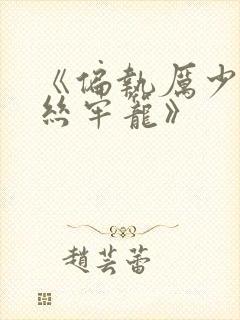 《偏執厲少
絲牢籠》
趙芸蕾